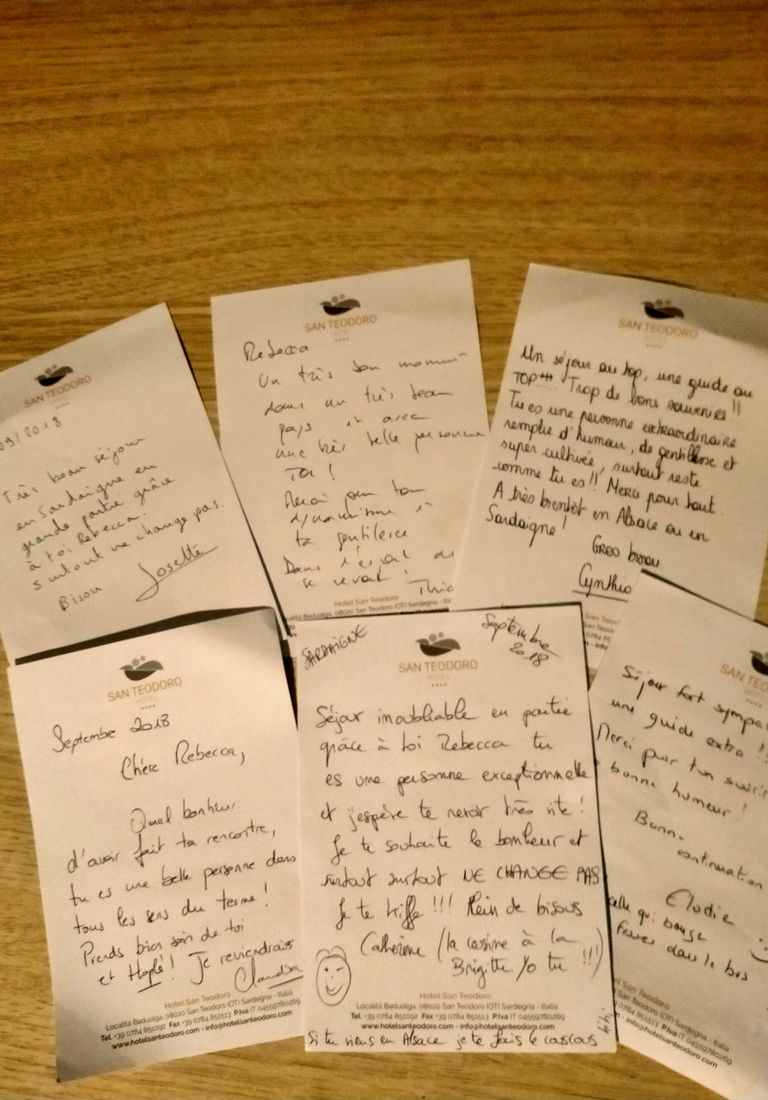 SAN TEODORO
HOTEL
09/2018
Très beau séjour
en Sardaigne en
grande partie grâce
à toi Rebecca.
surtout ne change pas.
Bisou Josette
SAN TEODORO
HOTEL
Rebecca
Un très bon moment
dans un très beau
pays et avec
une très belle personne
TOI !
Merci pour ton
dynamisme et
ta gentillesse
Dans l'espoir de
se revoir !
Hotel San Teodoro
Località Badualga, 08020 San Teodoro (OT) Sardegna - Ital
SAN TEODORO
Un séjour au top, une guide au
TOP+++ Trop de bons souvenirs !!
Tu es une personne extraordinaire
remplie d'humour, de gentillesse et
super cultivée, surtout reste
comme tu es !! Merci pour tout.
A très bientôt en Alsace ou en
Sardaigne !
Gros bisou
Cynthia
SAN TEODORO
HOTEL
Septembre 2018
Chère Rebecca,
Quel bonheur
d'avoir fait ta rencontre,
tu es une belle personne dans
tous les sens du terme !
Prends bien soin de toi
et Je reviendrais
Claudia
Hotel San Teodoro
Località Badualga, 08020 San Teodoro (OT) Sardegna - Italia
Tel. +39 0784 851092 Fax +39 0784 851513 P.Iva IT 04559780269
www.hotelsanteodoro.com - info@hotelsanteodoro.com
SARDAIGNE
Septembre
2018
SAN TEODORO
HOTEL
Séjour inoubliable en partie
grâce à toi Rebecca tu
es une personne exceptionnelle
et j'espère te revoir très vite !
Je te souhaite le bonheur et
surtout surtout NE CHANGE PAS
Je te kiffe !!! Plein de bisous
Catherine (la cosine à la
Brigitte yo tu !!!)
Hotel San Teodoro
Località Badualga, 08020 San Teodoro (OT) Sardegna - Italia
Tel. +39 0784 851092 Fax +39 0784 851513 P.Iva IT 04559780269
www.hotelsanteodoro.com - info@hotelsanteodoro.com
Si tu viens en Alsace je te fais le couscous
SAN TEO
Séjour fort sympa
une guide extra !!
Merci pour ton sourire
bonne humeur !
Bonne
continuation
Elodie
celle qui bouge
fesses dans le bus
Hotel San Teodoro
08020 San Teodoro (OT) Sardegna - Italia
Fax +39 0784 851513 P.Iva IT 04559780269
info@hotelsanteodoro.com